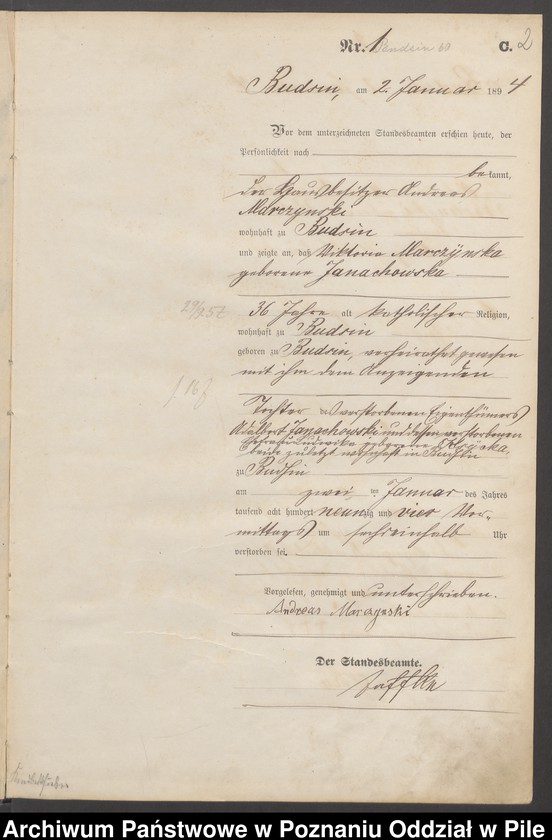 Nr. 1 C. 2
Budsin, am 2. Januar 1894
Vor dem unterzeichneten Standesbeamten erschien heute, der
Persönlichkeit nach
bekannt,
der Hausbesitzer Andreas
Marczynski
wohnhaft zu Budsin
und zeigte an, daß Viktoria Marczynska
geborene Janachowska
36 Jahre alt katholischer Religion,
wohnhaft zu Budsin
geboren zu Budsin, verheirathet gewesen
mit ihm dem Anzeigenden
Tochter des verstorbenen Eigenthümers
Adalbert Janachowski und dessen verstorbenen
Ehefrau Ludwika geborene
beide zuletzt wohnhaft in Budsin
zu Budsin
am zwei ten Januar des Jahres
tausend acht hundert neunzig und vier Vor-
mittags um sechseinhalb Uhr
verstorben sei.
Vorgelesen, genehmigt und unterschrieben.
Andreas Marczynski
Der Standesbeamte.
Archiwum Państwowe w Poznaniu Oddział w Pile